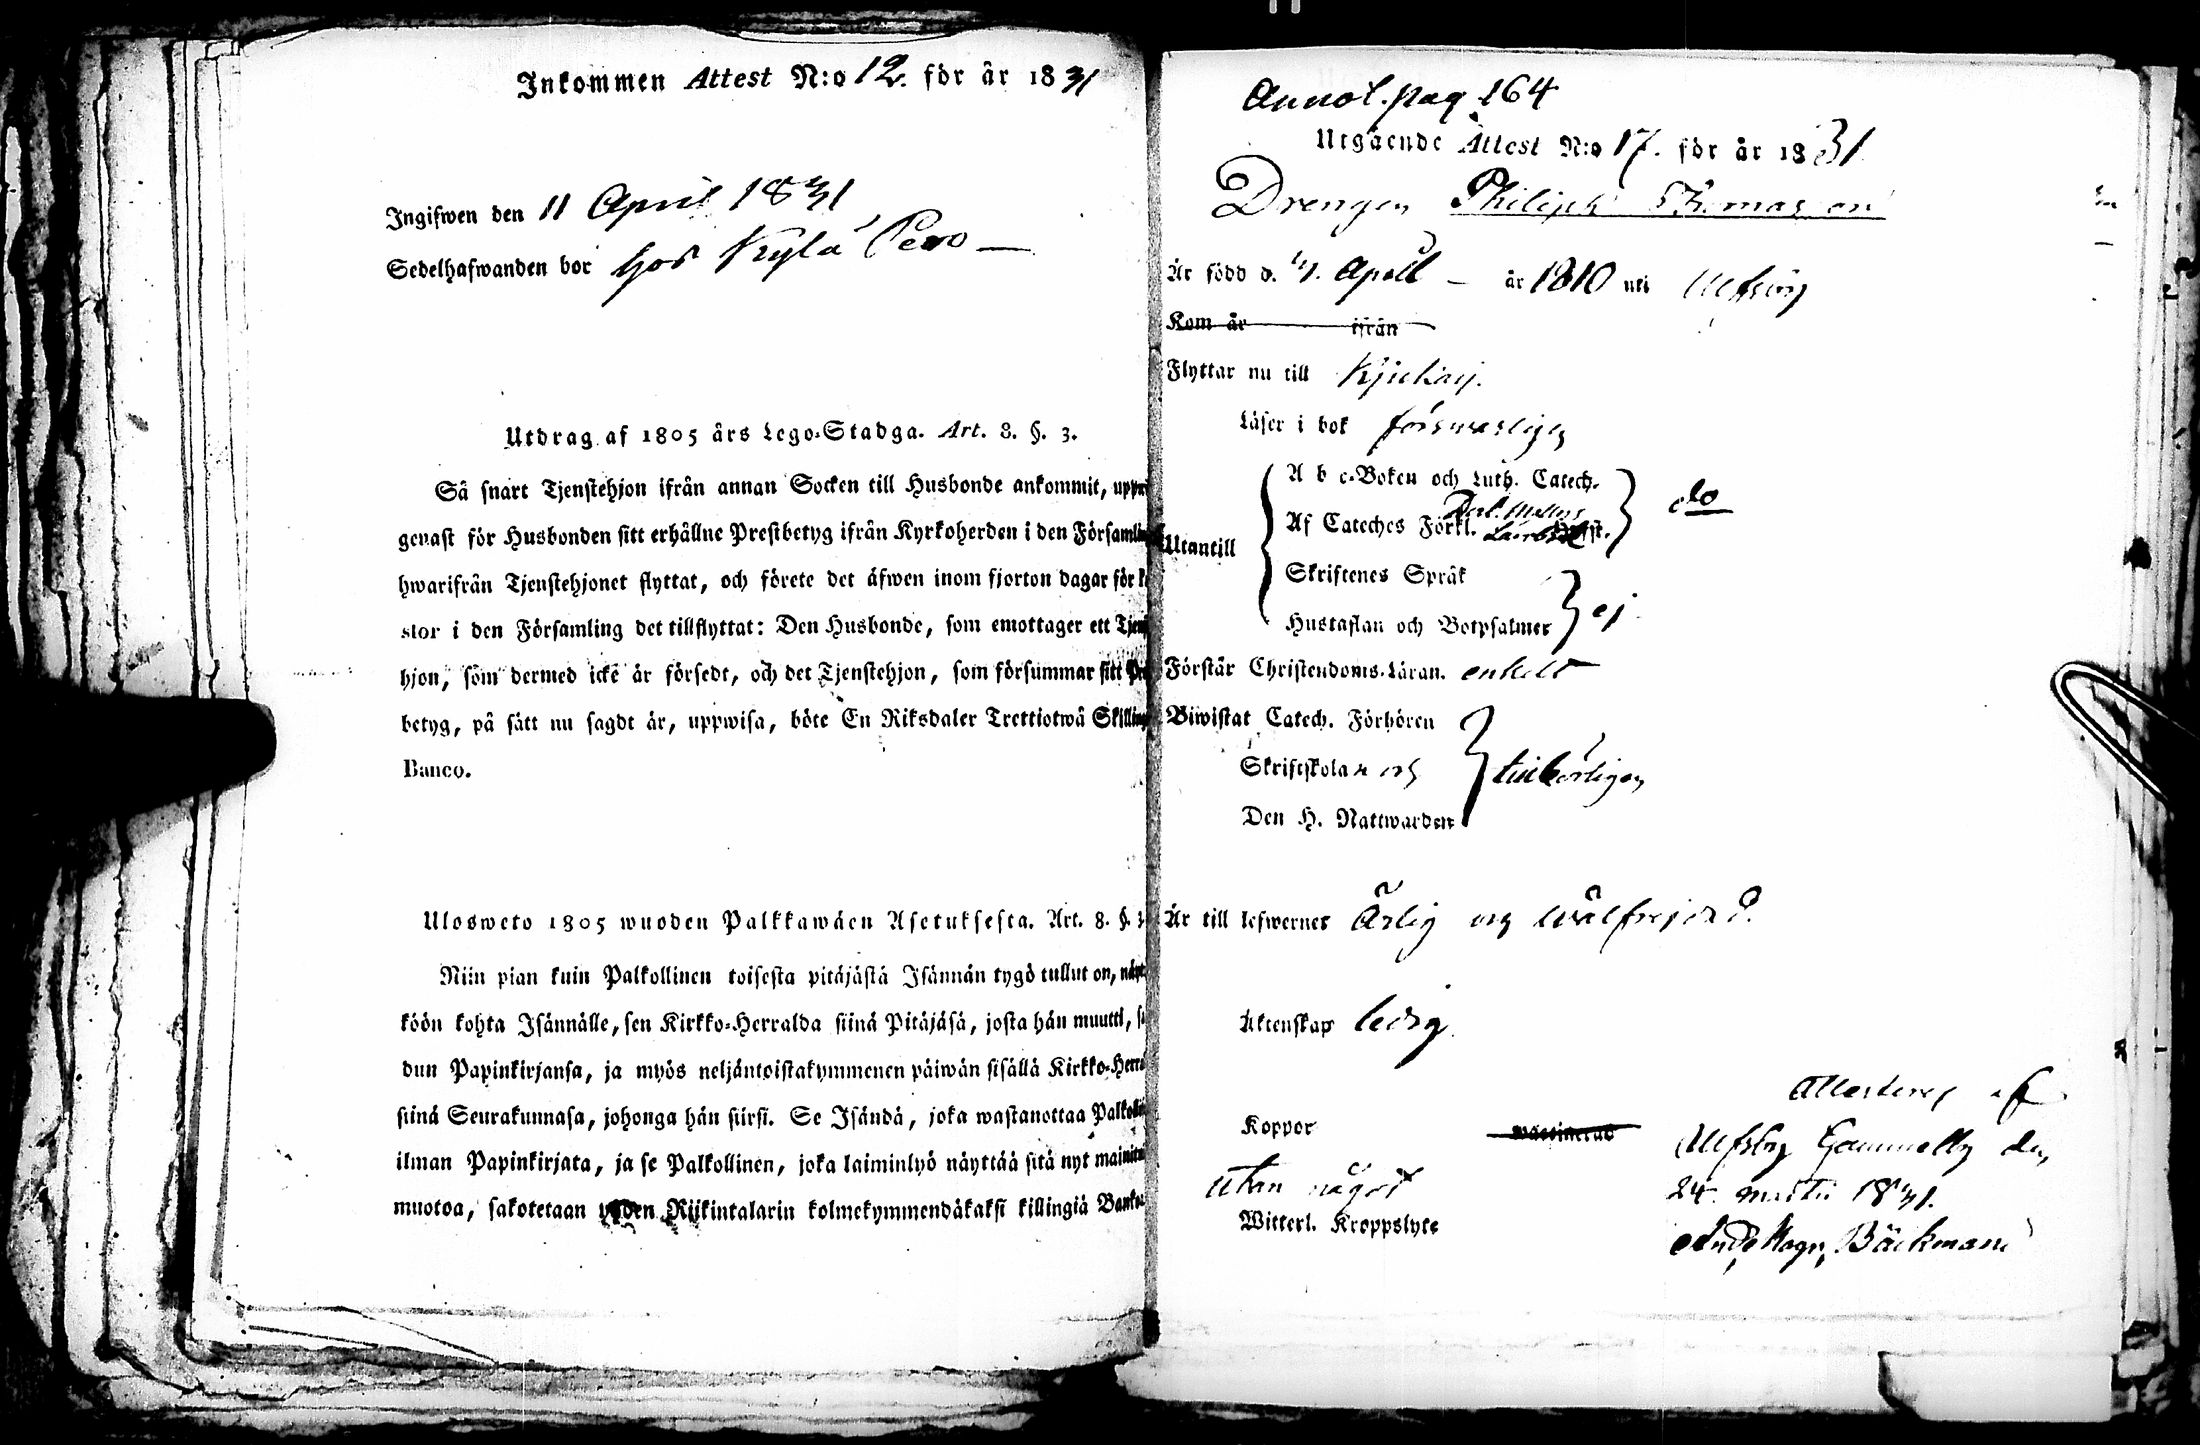 Inkommen Attest N:o 12. för år 1831
Ingifwen den 11 April 1831
Sedelhafwanden bor hos Kylä Pero —
Utdrag af 1805 års Lego-Stadga. Art. 8. §. 3.
Så snart Tjenstehjon ifrån annan Socken till Husbonde ankommit,
genast för Husbonden sitt erhållne Prestbetyg ifrån Kyrkoherden i den
hwarifrån Tjenstehjonet flyttat, och förete det äfwen inom fjorton dagar för
stor i den Församling det tillflyttat: Den Husbonde, som emottager ett
hjon, som dermed icke är försedt, och det Tjenstehjon, som försummar sitt
betyg, på sätt nu sagdt är, uppwisa, böte En Riksdaler Trettiotwå
Banco.
Ulosweto 1805 wuoden Palkkawäen Asetuksesta. Art. 8. §. 3
Niin pian kuin Palkollinen toisesta pitäjästä Isännän tygö tullut on,
köön kohta Isännälle, sen Kirkko-Herralda siinä Pitäjäsä, josta hän muutti,
dun Papinkirjansa, ja myös neljäntoistakymmenen päiwän sisällä
siinä Seurakunnasa, johonga hän siirsi. Se Isändä, joka wastanottaa
ilman Papinkirjata, ja se Palkollinen, joka laiminlyö näyttää sitä nyt
muotoa, sakotetaan yhden Rijkintalarin kolmekymmendäkaksi killingiä
Annot. pag 164
Utgående Attest N:o 17. för år 1831
Drengen Philiph Thomasson
Är född d. April — år 1810 uti Ulfsby
Kom år ifrån
Flyttar nu till
Läser i bok förswarligen
A b c-Boken och Luth. Catech.
Af Cateches Förkl.
do
Utantill
Skriftenes Språk
Hustaflan och Botpsalmer ej
Förstår Christendoms-Läran. enkelt
Biwistat Catech. Förhören
Skriftskolan och tillbörligen
Den H. Nattwarden
Är till lefwernet Ärlig och wälfrejdad.
Äktenskap ledig
Attesteras af
Koppor waccinerad Ulfsby Gammelby den
utan något 24 Martii 1831.
Witterl. Kroppslyte Bäckman